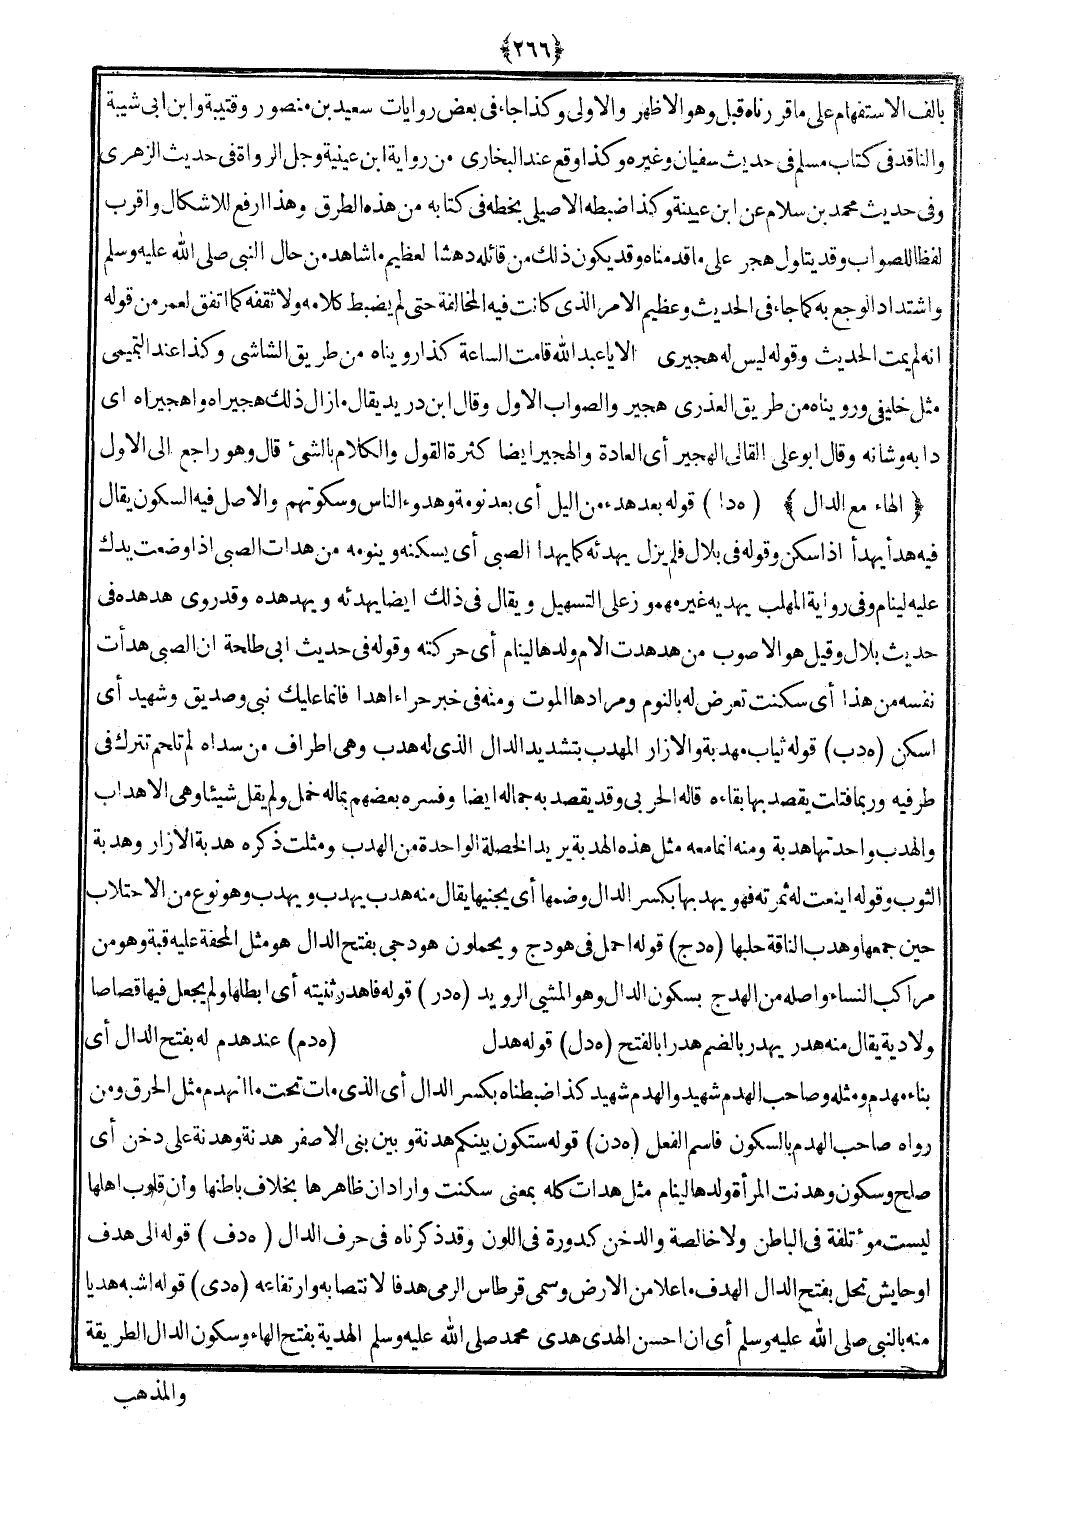 ﴿٢٦٦﴾
بالف الاستفهام على ماقررناه قبل وهو الاظهر والاولى وكذا جاء فى بعض روايات سعيد بن منصور وقتيبة وابن ابى شيبة
والناقد فى كتاب مسلم فى حديث سفيان وغيره وكذا وقع عند البخارى من رواية ابن عيينة وجل الرواة فى حديث الزهرى
وفى حديث محمد بن سلام عن ابن عيينة وكذا ضبطه الاصيلى بخطه فى كتابه من هذه الطرق وهذا ارفع للاشكال واقرب
لفظا للصواب وقد يتاول هجر على ماقدمناه وقد يكون ذلك من قائله دهشا لعظيم ماشاهد من حال النبى صلى الله عليه وسلم
واشتداد الوجع به كما جاء فى الحديث وعظيم الامر الذى كانت فيه المخالفة حتى لم يضبط كلامه ولا ثقفه كما اتفق لعمر من قوله
انه لم يمت الحديث وقوله ليس له هجيرى الا ياعبد الله قامت الساعة كذا رويناه من طريق الشاشى وكذا عند التميمى
مثل خليفى ورويناه من طريق العذرى هجير والصواب الاول وقال ابن دريد يقال مازال ذلك هجيراه واهجيراه اى
دابه وشانه وقال ابو على القالى الهجير أى العادة والهجير ايضا كثرة القول والكلام بالشئ قال وهو راجع الى الاول
﴿ الهاء مع الدال ﴾ ( ه‍دا ) قوله بعد هدء من اليل أى بعد نومة وهدوء الناس وسكوتهم والاصل فيه السكون يقال
فيه هدأ يهدأ اذا سكن وقوله فى بلال فلم يزل يهدئه كما يهدا الصبى أى يسكنه وينومه من هدات الصبى اذا وضعت يدك
عليه لينام وفى رواية المهلب يهديه غير مهموز على التسهيل ويقال فى ذلك ايضا يهدئه ويهدهده وقد روى هدهده فى
حديث بلال وقيل هو الاصوب من هدهدت الام ولدها لينام أى حركته وقوله فى حديث ابى طلحة ان الصبى هدأت
نفسه من هذا أى سكنت تعرض له بالنوم ومرادها الموت ومنه فى خبر حراء اهدا فانما عليك نبى وصديق وشهيد أى
اسكن (ه‍دب) قوله ثياب مهدبة والازار المهدب بتشديد الدال الذى له هدب وهى اطراف من سداه لم تلحم تترك فى
طرفيه وربما فتلت يقصد بها بقاءه قاله الحربى وقد يقصد به جماله ايضا وفسره بعضهم بماله خمل ولم يقل شيئا وهى الاهداب
والهدب واحدتها هدبة ومنه انما معه مثل هذه الهدبة يريد الخصلة الواحدة من الهدب ومثلت ذكره هدبة الازار وهدبة
الثوب وقوله اينعت له ثمرته فهو يهدبها بكسر الدال وضمها أى يجنيها يقال منه هدب يهدب ويهدب وهو نوع من الاحتلاب
حين جمعها وهدب الناقة حلبها (ه‍دج) قوله احمل فى هودج ويحملون هودجى بفتح الدال هو مثل المحفة عليه قبة وهو من
مراكب النساء واصله من الهدج بسكون الدال وهو المشى الرويد (ه‍در) قوله فاهدر ثنيته أى ابطلها ولم يجعل فيها قصاصا
ولا دية يقال منه هدر يهدر بالضم هدرا بالفتح (ه‍دل) قوله هدل (ه‍دم) عند هدم له بفتح الدال أى
بناء مهدم ومثله وصاحب الهدم شهيد والهدم شهيد كذا ضبطناه بكسر الدال أى الذى مات تحت ما انهدم مثل الحرق ومن
رواه صاحب الهدم بالسكون فاسم الفعل (ه‍دن) قوله ستكون بينكم هدنة وبين بنى الاصفر هدنة وهدنة على دخن أى
صلح وسكون وهدنت المرأة ولدها لينام مثل هدات كله بمعنى سكنت واراد ان ظاهرها بخلاف باطنها وان قلوب اهلها
ليست مؤتلفة فى الباطن ولا خالصة والدخن كدورة فى اللون وقد ذكرناه فى حرف الدال ( ه‍دف ) قوله الى هدف
او حايش نحل بفتح الدال الهدف ماعلا من الارض وسمى قرطاس الرمى هدفا لانتصابه وارتفاعه (ه‍دى) قوله اشبه هديا
منه بالنبى صلى الله عليه وسلم أى ان احسن الهدى هدى محمد صلى الله عليه وسلم الهدية بفتح الهاء وسكون الدال الطريقة
والمذهب